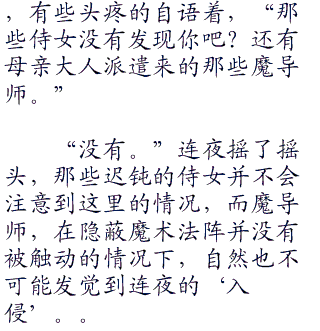 ，有些头疼的自语着，“那
些侍女没有发现你吧？还有
母亲大人派遣来的那些魔导
师。”
“没有。”连夜摇了摇
头，那些迟钝的侍女并不会
注意到这里的情况，而魔导
师，在隐蔽魔术法阵并没有
被触动的情况下，自然也不
可能发觉到连夜的‘入
侵’。。